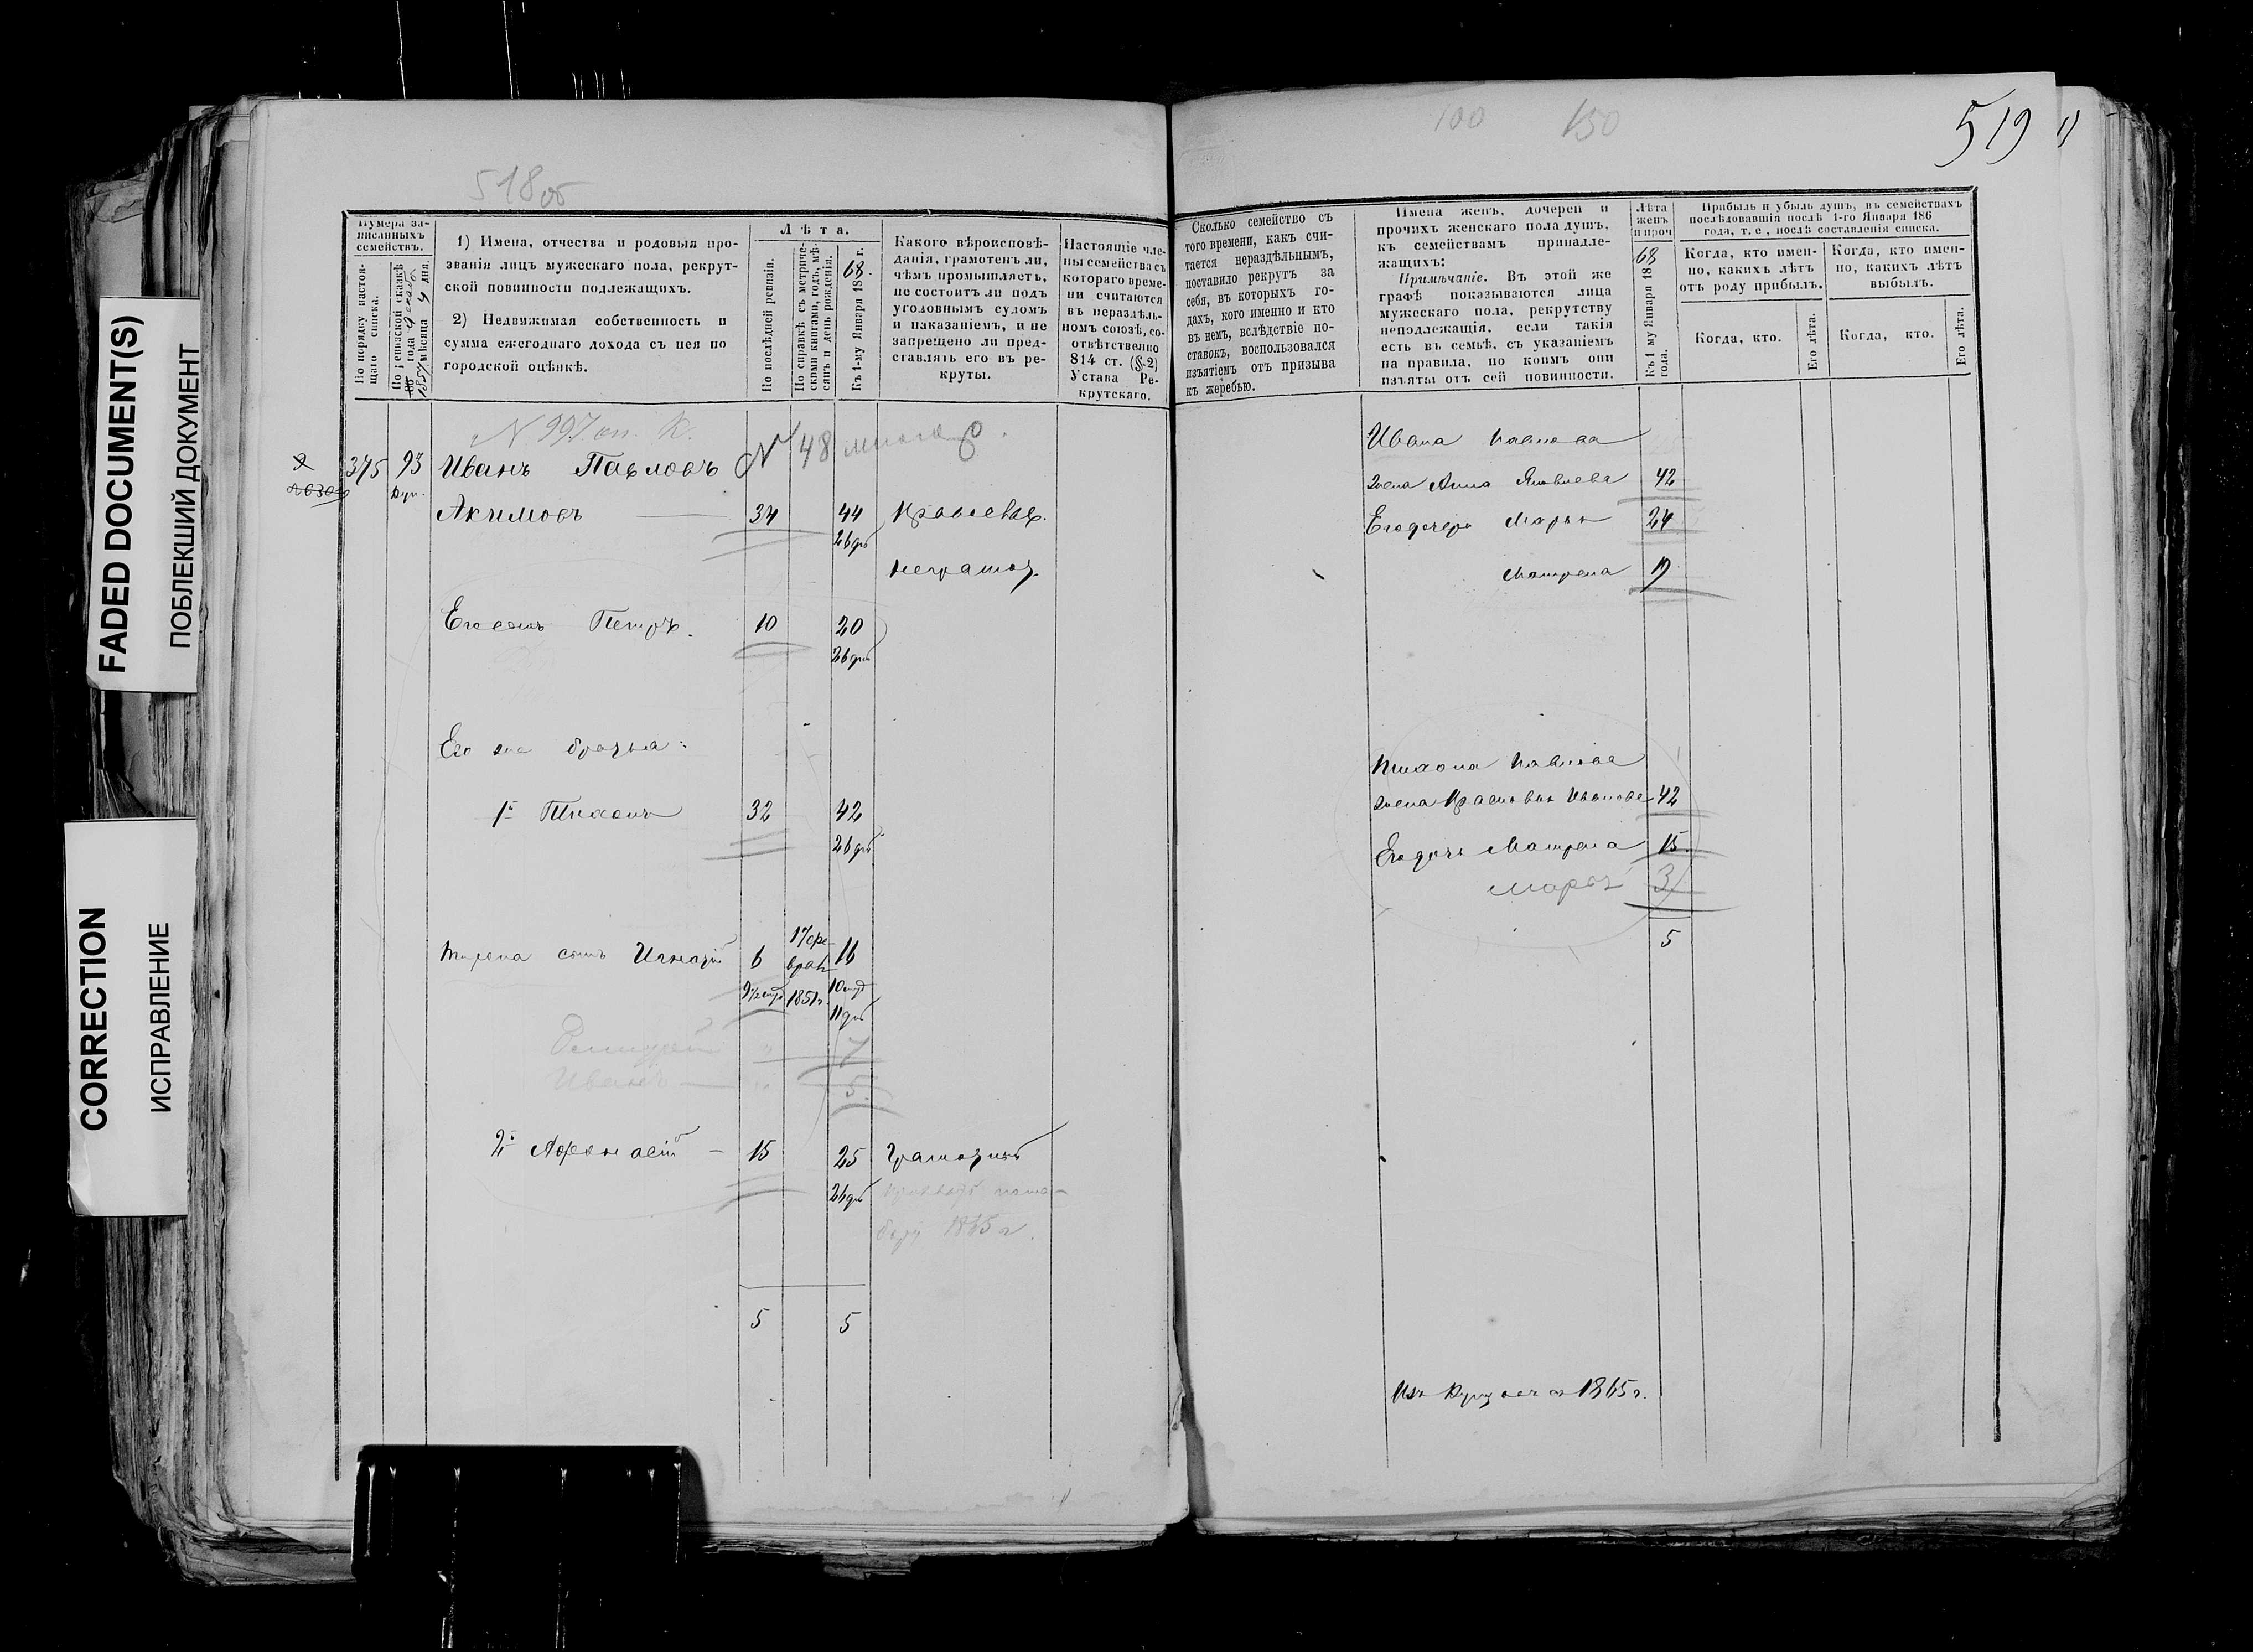 FADED DOCUMENT(S)
ПОБЛЕКШИЙ ДОКУМЕНТ
CORRECTION
ИСПРАВЛЕНИЕ
518 об
Нумера за-
писанныхъ
семействъ.
По порядку настоя-
щаго списка.
По ревизской сказкѣ
1857 года
мѣсяца 4 дня.
1) Имена, отчества и родовыя про-
званія лицъ мужескаго пола, рекрут-
ской повинности подлежащихъ.
2) Недвижимая собственность и
сумма ежегоднаго дохода съ нея по
городской оцѣнкѣ.
Лѣта.
По послѣдней ревизіи.
По справкѣ съ метриче-
скими книгами, годъ, мѣ-
сяцъ и день рожденія.
Къ 1-му Января 1868 г.
Какого вѣроисповѣ-
данія, грамотенъ ли,
чѣмъ промышляетъ,
не состоитъ ли подъ
уголовнымъ судомъ
и наказаніемъ, и не
запрещено ли пред-
ставлять его въ ре-
круты.
Настоящіе чле-
ны семейства съ
котораго време-
ни считаются
въ нераздѣль-
номъ союзѣ, со-
отвѣтственно
814 ст. (§-2)
Устава Ре-
крутскаго.
N 997 оп. К.
N 48
375 93 Иванъ Павловъ
Куп.
Акимовъ 34 44 Православ.
26 дн
неграмот.
Его сынъ Петръ. 10 20
26 дн
Его же братья:
1й Тихонъ 32 42
26 дн
Тихона сынъ Игнатій 6 17 фе- 16
враля
9 1/2 мѣс 1851 г. 10 мѣс
11 дн
Дмитрій " 7
Иванъ " 5
2й Афанасій 15 25 Грамотный
26 дн
1865 г.
5 5
100 150
519
Сколько семейство съ
того времени, какъ счи-
тается нераздѣльнымъ,
поставило рекрутъ за
себя, въ которыхъ го-
дахъ, кого именно и кто
въ немъ, вслѣдствіе по-
ставокъ, воспользовался
изъятіемъ отъ призыва
къ жеребью.
Имена женъ, дочерей и
прочихъ женскаго пола душъ,
къ семействамъ принадле-
жащихъ:
Примѣчаніе. Въ этой же
графѣ показываются лица
мужескаго пола, рекрутству
неподлежащія, если такія
есть въ семьѣ, съ указаніемъ
на правила, по коимъ они
изъяты отъ сей повинности.
Лѣта
женъ
и проч
Къ 1 му Января 1868
года.
Прибыль и убыль душъ, въ семействахъ
послѣдовавшія послѣ 1-го Января 186
года, т. е., послѣ составленія списка.
Когда, кто имен-
но, какихъ лѣтъ
отъ роду прибылъ.
Когда, кто имен-
но, какихъ лѣтъ
выбылъ.
Когда, кто.
Его лѣта.
Когда, кто.
Его лѣта.
Ивана Павлова
жена Анна Яковлева 42
Его дочери Марья 24
Матрена
Тихона Павлова
жена Прасковья Иванова 42
Его дочь Матрена 15
Марья 3
5
Изъ Купцовъ съ 1865 г.